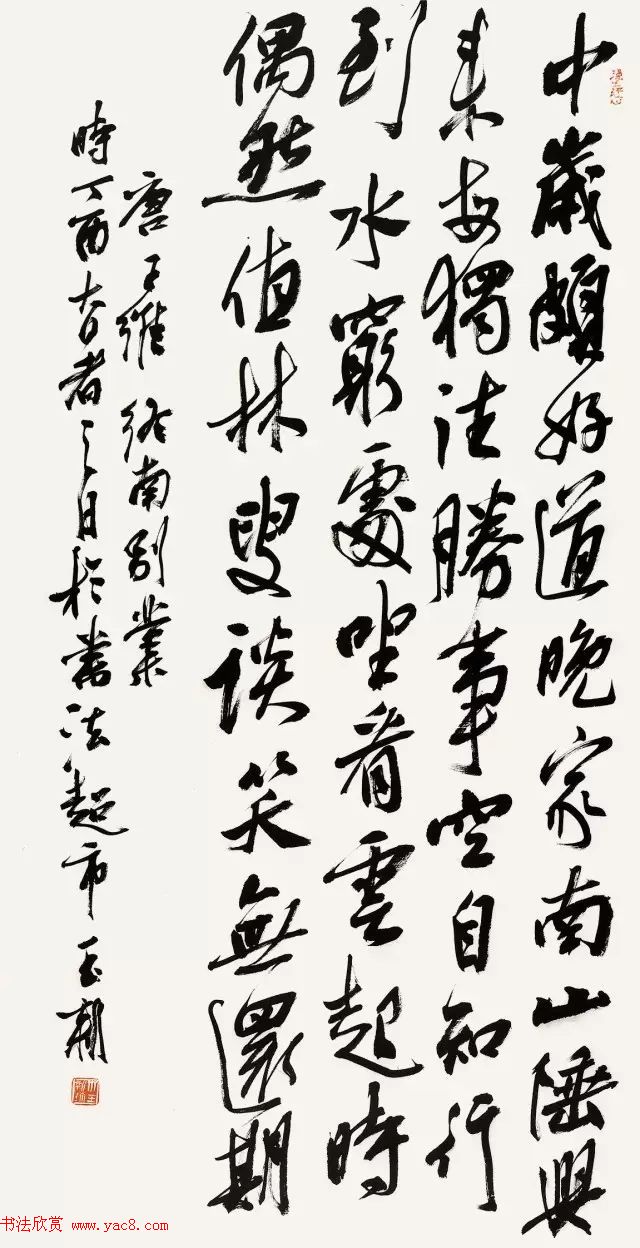 中歲頗好道晚家南山陲興
来每獨往勝事空自知行
到水窮處坐看雲起時
偶然值林叟談笑無還期
唐王維終南別業
時丁酉之日於書法超市
书法欣赏 www.yac8.com